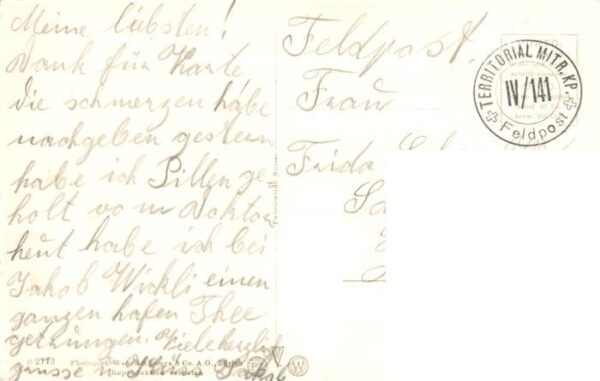 Meine liebsten!
Dank für Karte,
die schmerzen habe
nachgeben gestern
habe ich Pillen ge
holt vom Doktor
heut habe ich bei
Jakob Wickli einen
ganzen hafen Thee
getrungen.
u. Jakob
Feldpost.
Frau
Frida
TERRITORIAL MITR. KP.
IV/141
Feldpost
O 2113 Photograph
Co. A.G., Zürich
Reproduktion verboten
W